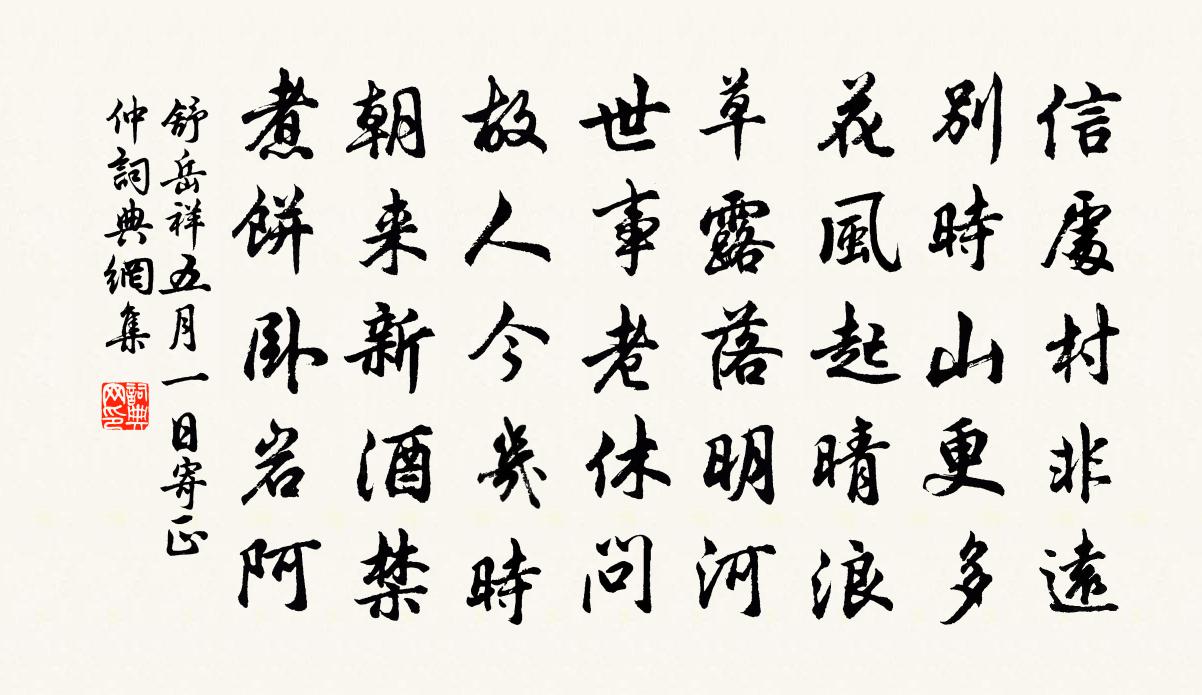 信處村非遠
別時山更多
花風起晴浪
草露落明河
世事老休問
故人今幾時
朝来新酒禁
煮餅卧岩阿
舒岳祥五月一日寄正
仲詞典網集
詞典网印